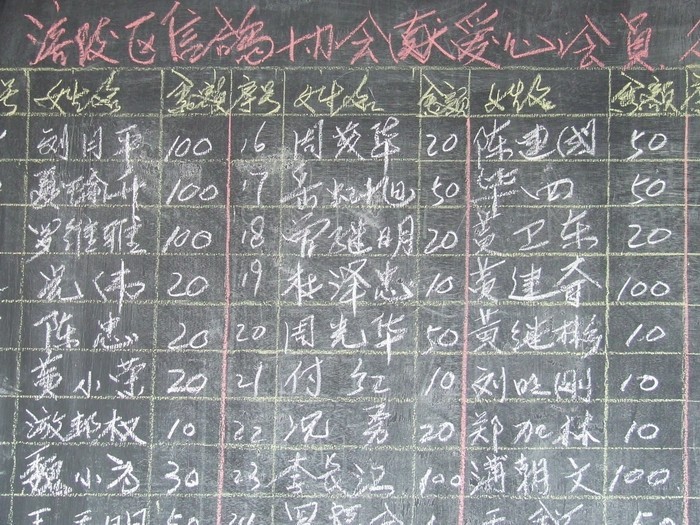 涪陵区信鸽协会献爱心会员
号 姓名 金额 序号 姓名 金额 姓名 金额
刘月平 100 16 周茂华 20 陈建国 50
100 17 50 华四 50
罗维雅 100 18 曾继明 20 黄卫东 20
况伟 20 19 杜泽忠 10 黄建奇 100
陈忠 20 20 周光华 50 黄继彬 10
黄小荣 20 21 付红 10 刘明刚 10
敖邦权 10 22 况勇 20 郑加林 10
魏小方 30 23 李长江 100 潘朝文 100